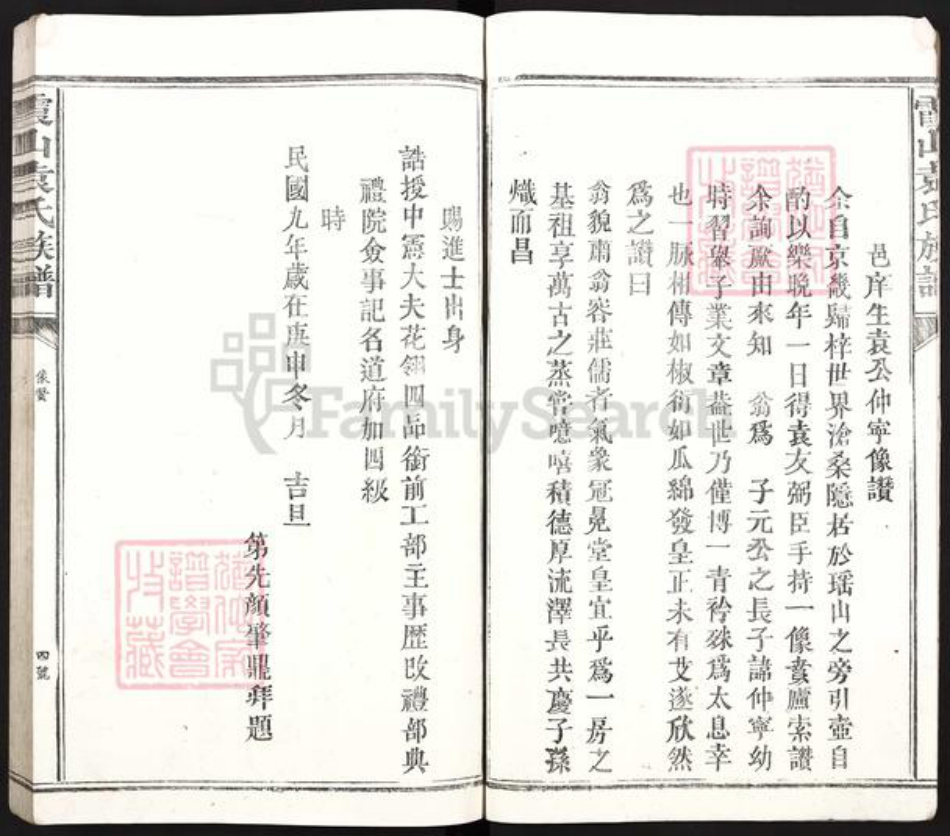 邑庠生袁公仲寧像讚
余自京畿歸梓世界滄桑隱居於瑶山之旁引壺自
酌以樂晚年一日得袁友弼臣手持一像賁廬索讚
余詢厥由來知 翁爲 子元公之長子諱仲寧幼
時習舉子業文章葢世乃僅博一青衿殊爲太息幸
也一脉相傳如椒衍如瓜綿發皇正未有艾遂欣然
爲之讚曰
翁貌肅翁容莊儒者氣象冠晃堂皇宜乎爲一房之
基祖享萬古之蒸嘗噫嘻積德厚流澤長共慶子孫
熾而昌
賜進士出身
誥授中憲大夫花翎四品銜前工部主事歴改禮部典
禮院僉事記名道府加四級
時
民國九年歲在庚申冬月 吉旦
第先顏肇鼎拜題
霞山袁氏族譜
像贊
四號
霞山袁氏族譜
譜學會
收藏
FamilySearch